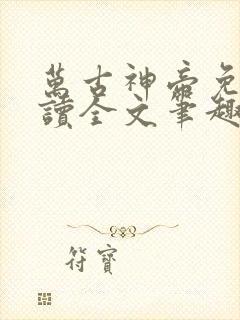 萬古神帝免
讀全文筆趣
符寶